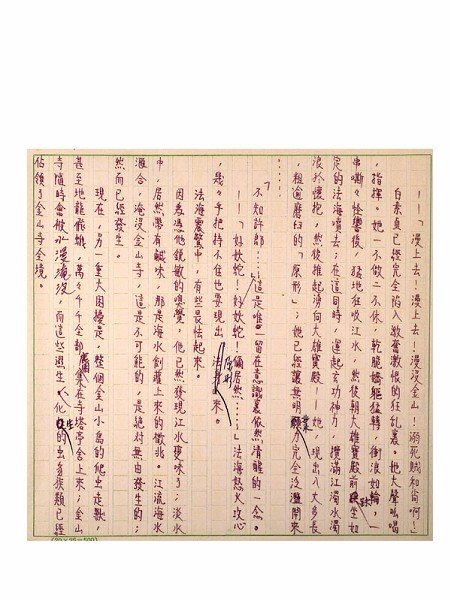 ——「漫上去!漫上去!漫沒金山!溺死賊和尚啊!」
白素貞已經完全陷入激奮激恨的狂亂裏。她大聲吆喝
,指揮。她一不做二不休,乾脆嬌軀猛轉,衝浪如輪,一
串嘶々怪響後,猛地狂吸江水,然後朝大雄寶殿前趺坐如
定的法海噴去;在這同時,運起玄功神力,攬滿江濁水濁
浪於懷抱,然後推起湧向大雄寶殿——她,現出八丈多長
,粗逾磨臼的「原形」;她已經讓無明業力完全泛濫開來
……。
「不知許郎……」這是唯一留在意識裏依然清醒的一念。
——「好妖蛇!好妖蛇!倆居然……」法海怒火攻心
,幾々乎把持不住也要現出來。
法海震驚中,有些畏怯起來。
因為憑他銳敏的嗅覺,他已然發現江水變味了;淡水
中,居然帶有鹹味,那是海水創灌上來的徵兆。江流海水
滙合,淹沒金山寺,這是不可能的,是絕對無由發生的;
然而已經發生。
現在,另一重大困擾是,整個金山小島的爬虫走獸,
甚至地龍飛蛾,萬々千々全部麕集在寺塔亭舍上來;金山
寺隨時會被水漫淹沒,而這些濕生、化生的虫豸族類已經
佔領了金山寺全境。
(20×25=500)